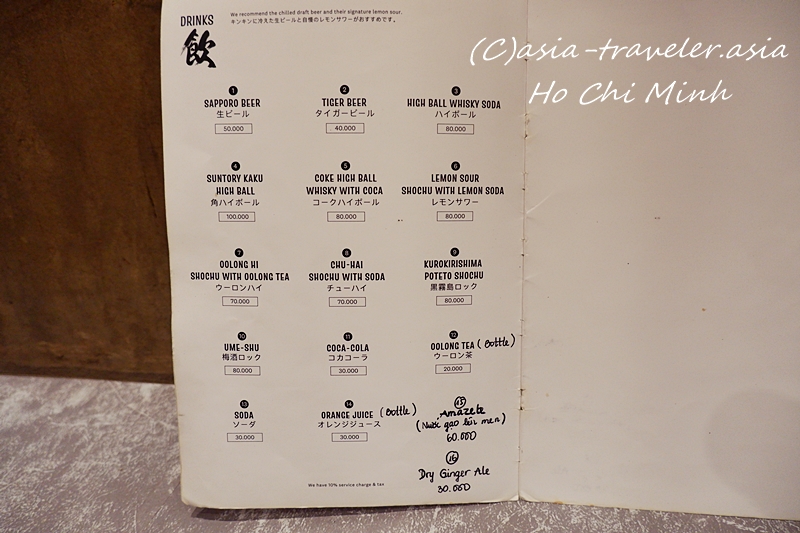 (C)asia-traveler.asia
Ho Chi Minh
DRINKS
飲
We recommend the chilled draft beer and their signature lemon sour.
キンキンに冷えた生ビールと自慢のレモンサワーがおすすめです。
1
SAPPORO BEER
生ビール
50.000
2
TIGER BEER
タイガービール
40.000
3
HIGH BALL WHISKY SODA
ハイボール
80.000
4
SUNTORY KAKU
HIGH BALL
角ハイボール
100.000
5
COKE HIGH BALL
WHISKY WITH COCA
コークハイボール
80.000
6
LEMON SOUR
SHOCHU WITH LEMON SODA
レモンサワー
80.000
7
OOLONG HI
SHOCHU WITH OOLONG TEA
ウーロンハイ
70.000
8
CHU-HAI
SHOCHU WITH SODA
チューハイ
70.000
9
KUROKIRISHIMA
POTETO SHOCHU
黒霧島ロック
80.000
10
UME-SHU
梅酒ロック
80.000
11
COCA-COLA
コカコーラ
30.000
12
OOLONG TEA (Bottle)
ウーロン茶
20.000
13
SODA
ソーダ
30.000
14
ORANGE JUICE (Bottle)
オレンジジュース
30.000
15
Amazake
(Nước gạo lên men)
60.000
16
Dry Ginger Ale
30.000
We have 10% service charge & tax